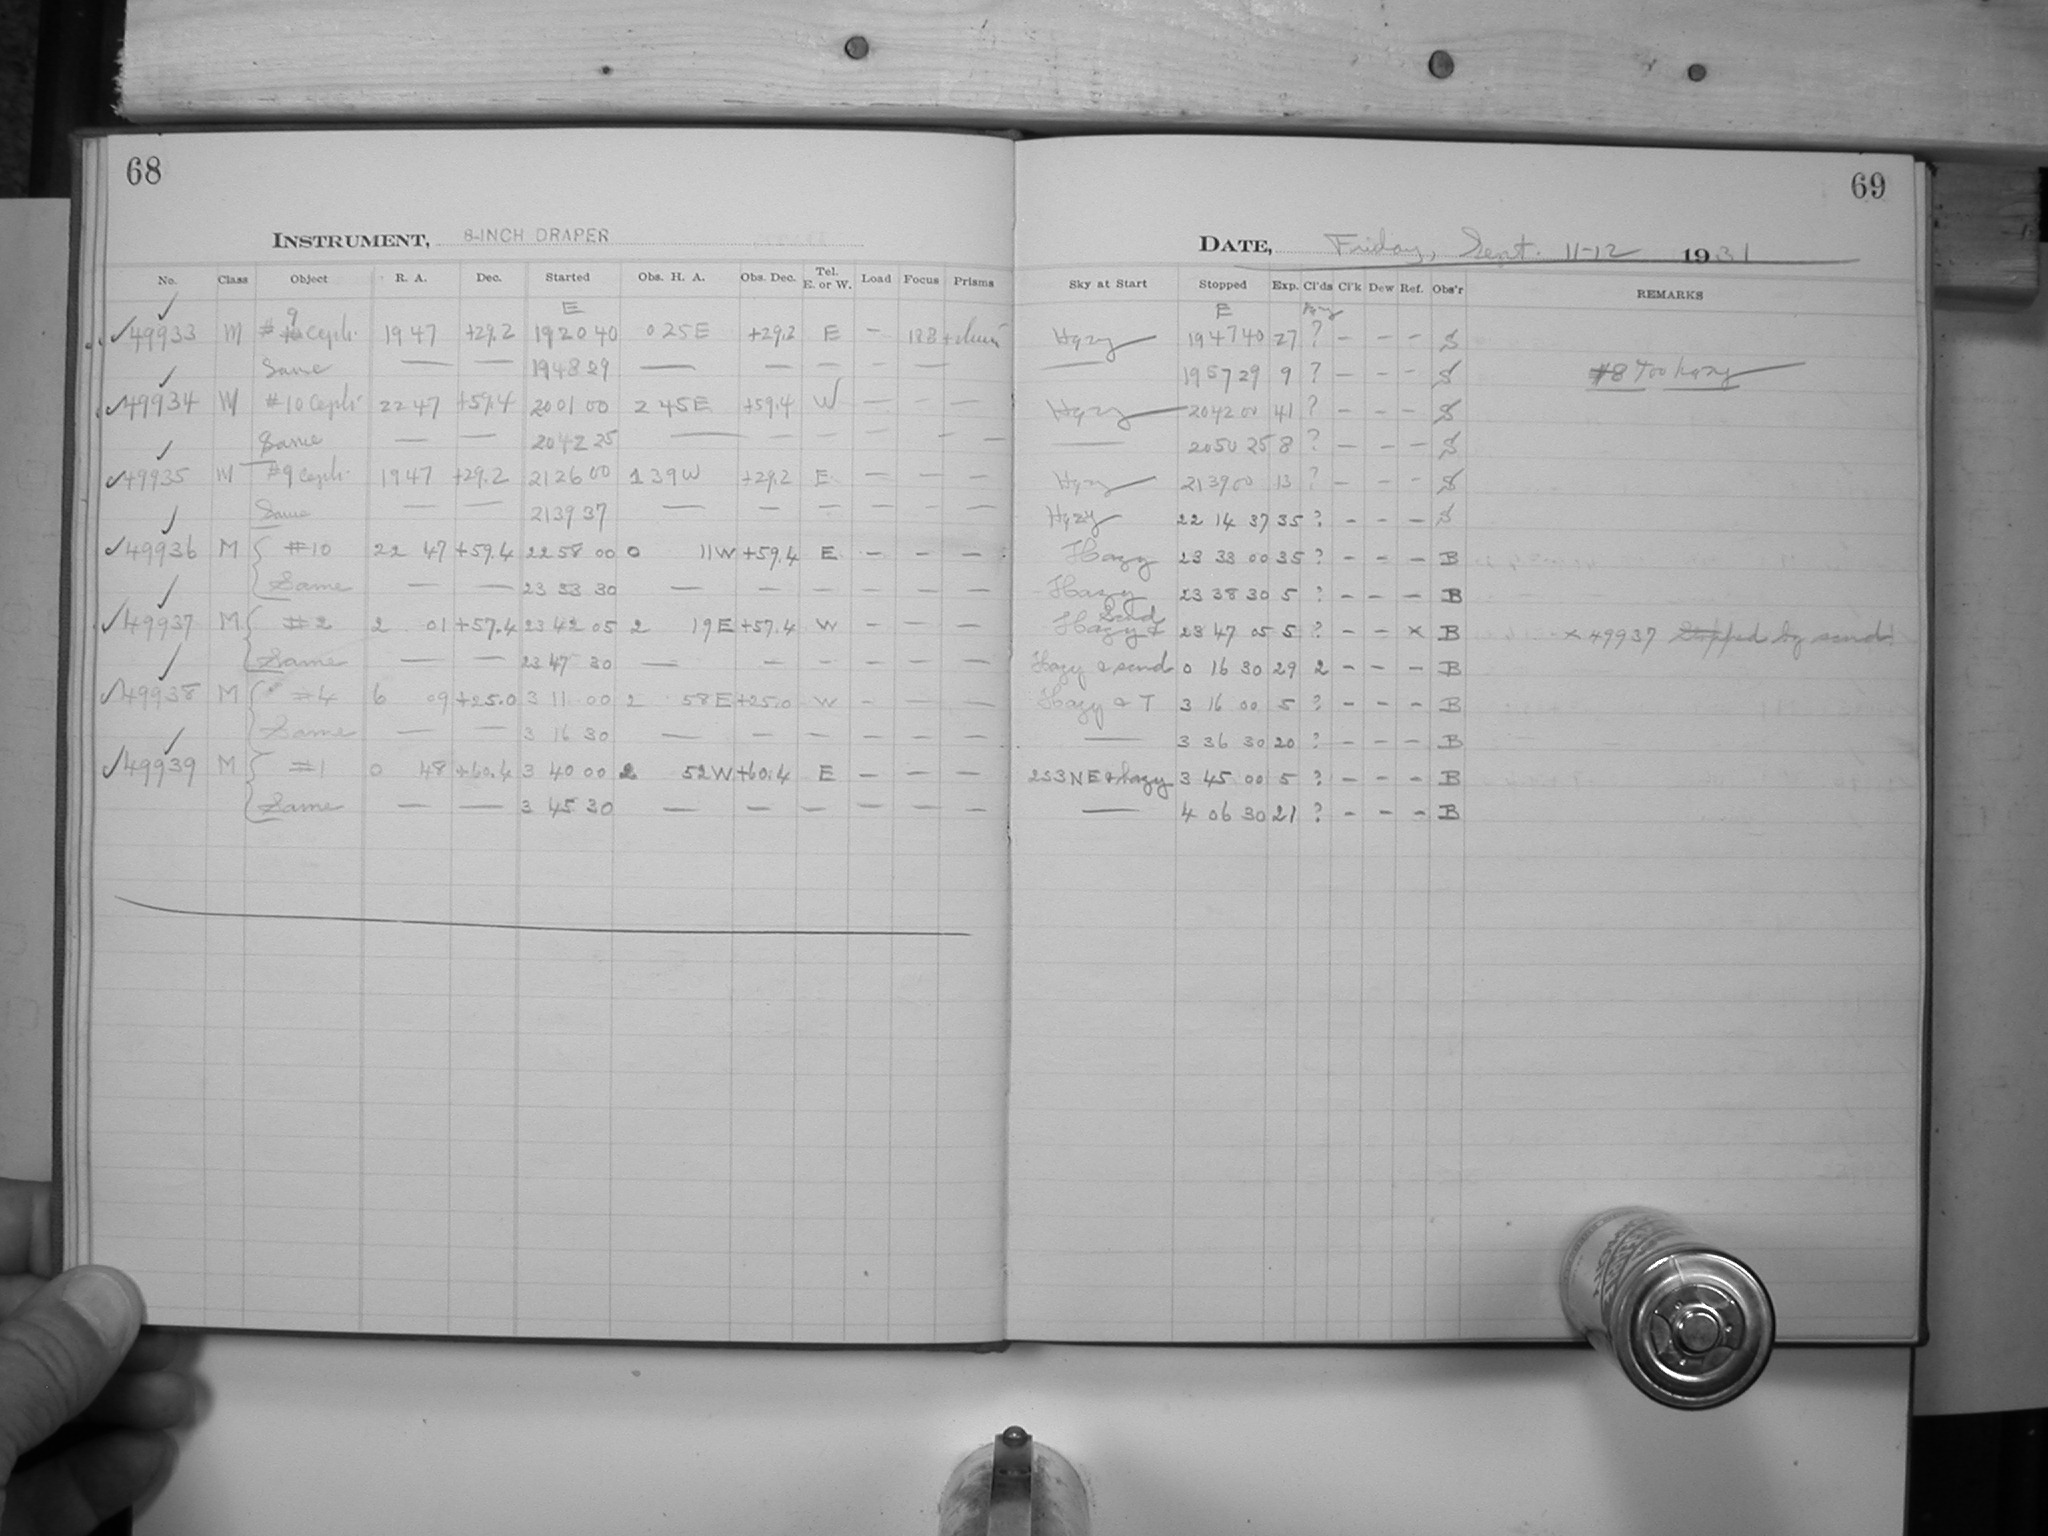 68
INSTRUMENT, 8-INCH DRAPER
No. Class Object R. A. Dec. Started Obs. H. A. Obs. Dec. Tel. E. or W. Load Focus Prisms
E
49933 M # 9 Ceph. 19 47 +29.2 19 20 40 0 25 E +29.2 E — 18.8
Same — — 19 48 29 — — — — — —
49934 M #10 Ceph. 22 47 +59.4 20 01 00 2 45 E +59.4 W — — —
Same — — 20 42 25 — — — — — —
49935 M #9 Ceph. 19 47 +29.2 21 26 00 1 39 W +29.2 E — — —
Same — — 21 39 37 — — — — — —
49936 M { #10 22 47 +59.4 22 58 00 0 11 W +59.4 E — — —
Same — — 23 33 30 — — — — — —
49937 M { #2 2 01 +57.4 23 42 05 2 19 E +57.4 W — — —
Same — — 23 47 30 — — — — — —
49938 M { #4 6 09 +25.0 3 11 00 2 58 E +25.0 W — — —
Same — — 3 16 30 — — — — — —
49939 M { #1 0 48 +60.4 3 40 00 2 52 W +60.4 E — — —
Same — — 3 45 30 — — — — — —
69
DATE, Friday, Sept. 11-12 1931
Sky at Start Stopped Exp. Cl'ds Cl'k Dew Ref. Obs'r REMARKS
E
Hazy 19 47 40 27 ? — — — S
— 19 57 29 9 ? — — — S #8 Too hazy
Hazy 20 42 00 41 ? — — — S
— 20 50 25 8 ? — — — S
Hazy 21 39 00 13 ? — — — S
Hazy 22 14 37 35 ? — — — S
Hazy 23 33 00 35 ? — — — B
Hazy 23 38 30 5 ? — — — B
Hazy + Scud 23 47 05 5 ? — — x B x 49937 Stopped by scud
Hazy & scud 0 16 30 29 2 — — — B
Hazy & T 3 16 00 5 ? — — — B
— 3 36 30 20 ? — — — B
2S3NE & hazy 3 45 00 5 ? — — — B
— 4 06 30 21 ? — — — B